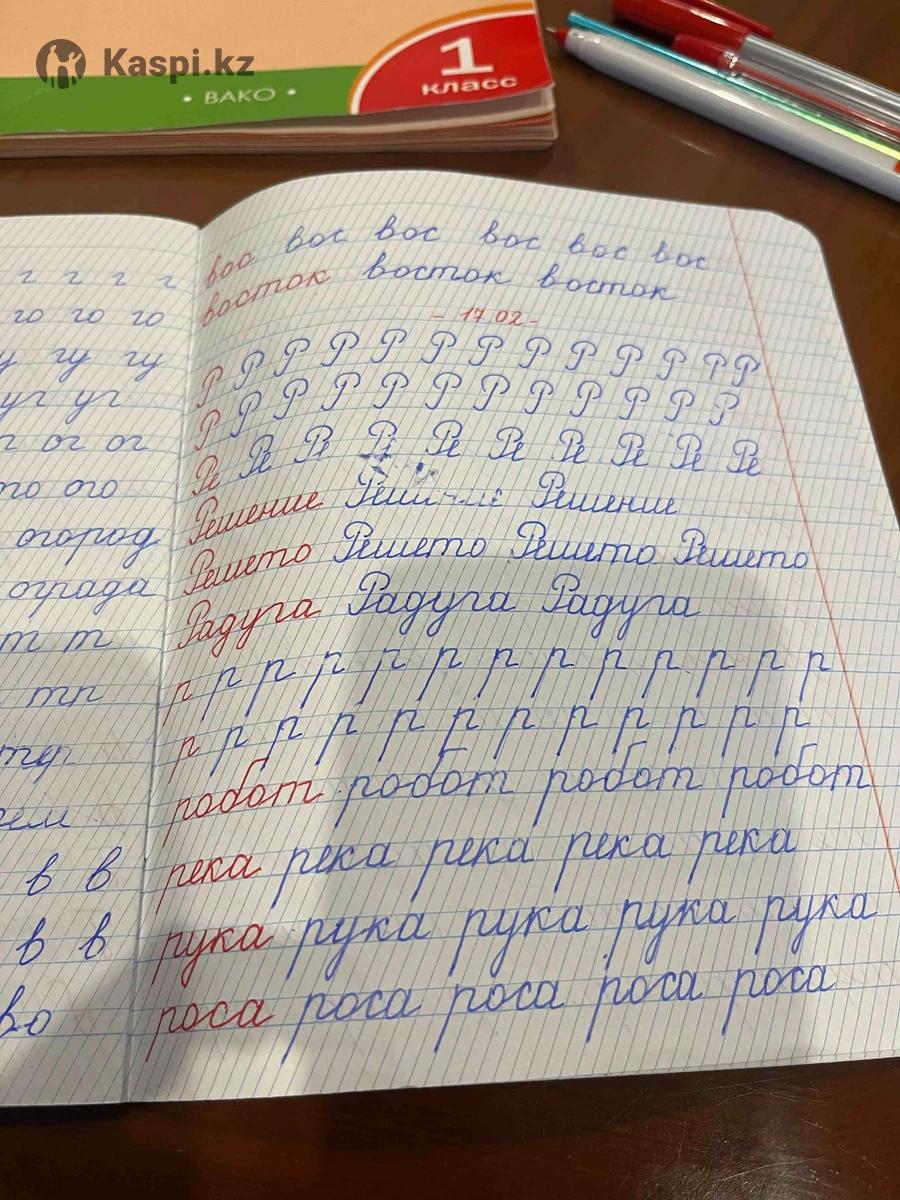 Kaspi.kz
1
класс
• ВАКО •
г г г г
го го го
гу гу
уг уг
ог ог
ого
огород
ограда
т т
тп
в в
в в
вос вос вос вос вос вос
восток восток восток
- 17.02 -
Р Р Р Р Р Р Р Р Р Р Р Р Р
Р Р Р Р Р Р Р Р Р Р Р Р
Ре Ре Ре Ре Ре Ре Ре Ре Ре Ре
Решение Решение Решение
Решето Решето Решето Решето
Радуга Радуга Радуга
р р р р р р р р р р р р р
р р р р р р р р р р р р
робот робот робот робот
река река река река река
рука рука рука рука рука
роса роса роса роса роса